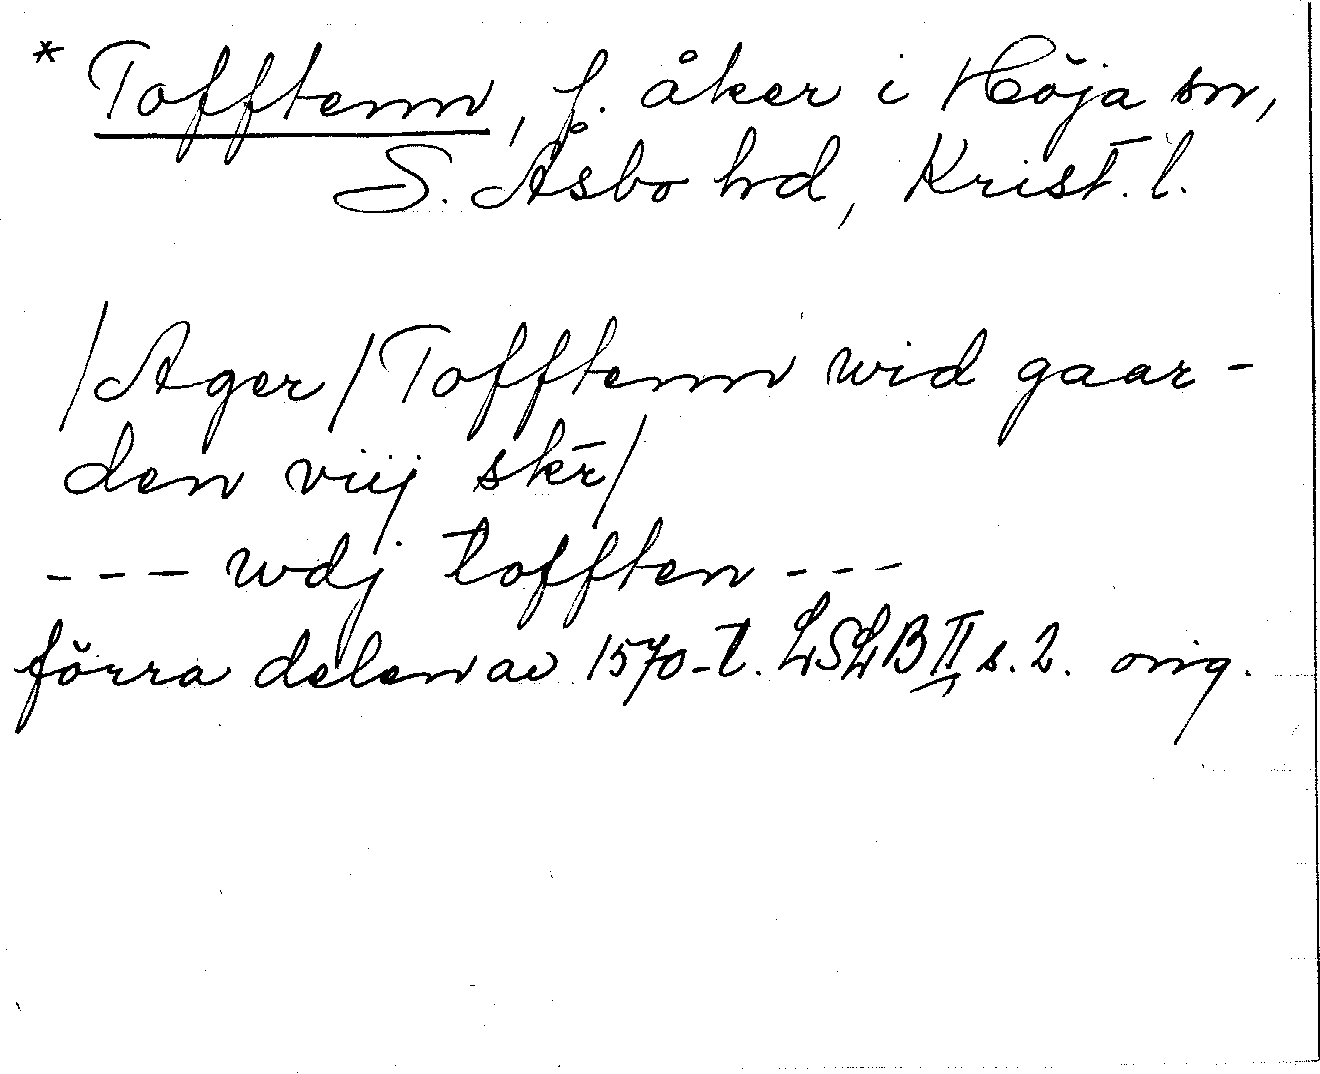 * Tofftenn, f. åker i Höja sn,
S. Åsbo hd, Krist. l.
/Ager/Tofftenn wid gaar-
den viij skr̄/
--- wdj tofften ---
förra delen av 1570-t. LSLB II s. 2. orig.